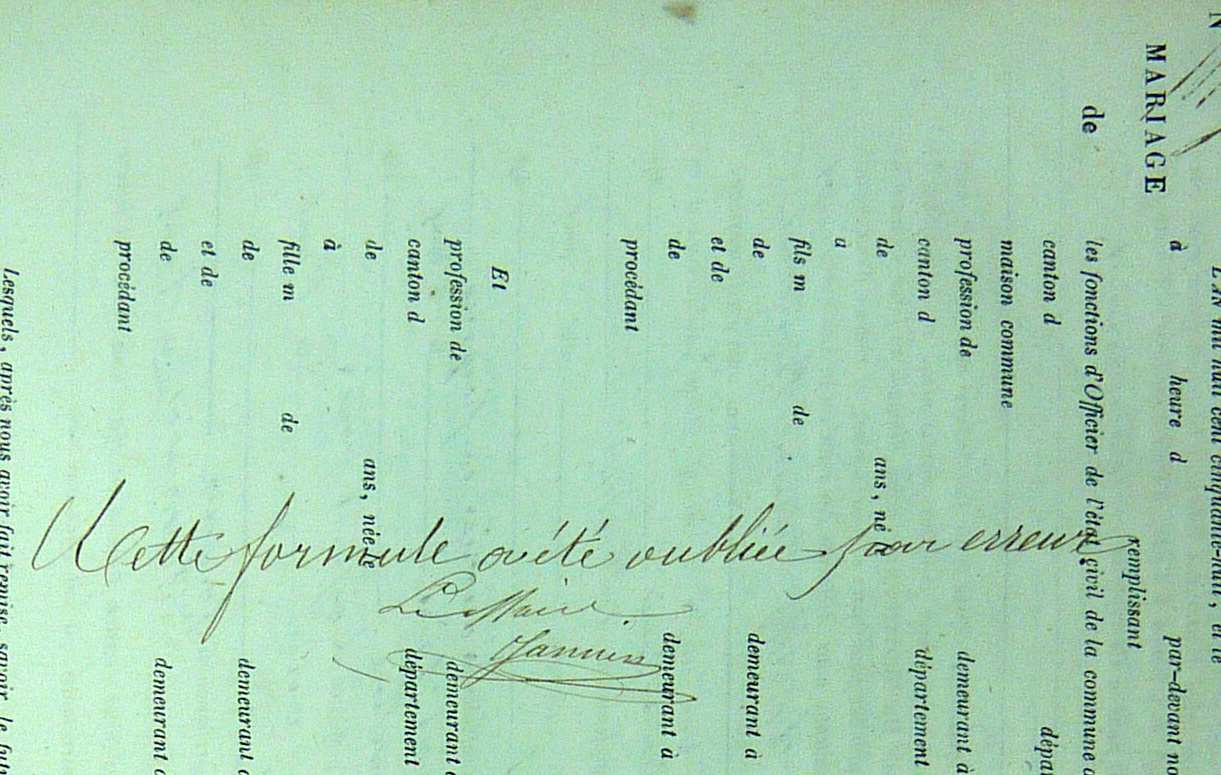 N
MARIAGE
de
L'AN mil huit cent cinquante-huit, et le
à heure d par-devant no
remplissant
les fonctions d'Officier de l'état civil de la commune d
canton d dépa
maison commune
profession de demeurant à
canton d département
de ans, né
à
fils m de
de demeurant à
et de
de demeurant à
procédant
Et
profession de demeurant à
canton d département
de ans, née le
à
fille m de
de demeurant à
et de
de demeurant à
procédant
Lesquels, après nous avoir fait remise, savoir le futu
Cette formule a été oubliée par erreur
Le Maire